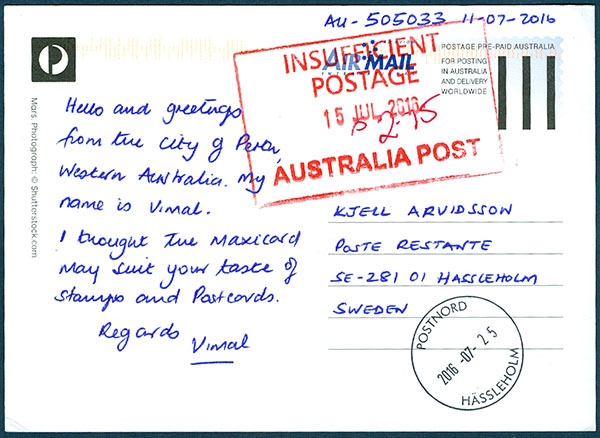 AU-505033 11-07-2016
INSUFFICIENT
POSTAGE
15 JUL 2016
2.75
AUSTRALIA POST
AIR MAIL
POSTAGE PRE-PAID AUSTRALIA
FOR POSTING
IN AUSTRALIA
AND DELIVERY
WORLDWIDE
Mars. Photograph: © Shutterstock.com
Hello and greetings
from the City of Perth,
Western Australia. My
name is Vimal.
I thought the Maxicard
may suit your taste of
stamps and Postcards.
Regards
Vimal
KJELL ARVIDSSON
POSTE RESTANTE
SE-281 01 HASSLEHOLM
SWEDEN
POSTNORD
2016-07-25
HÄSSLEHOLM